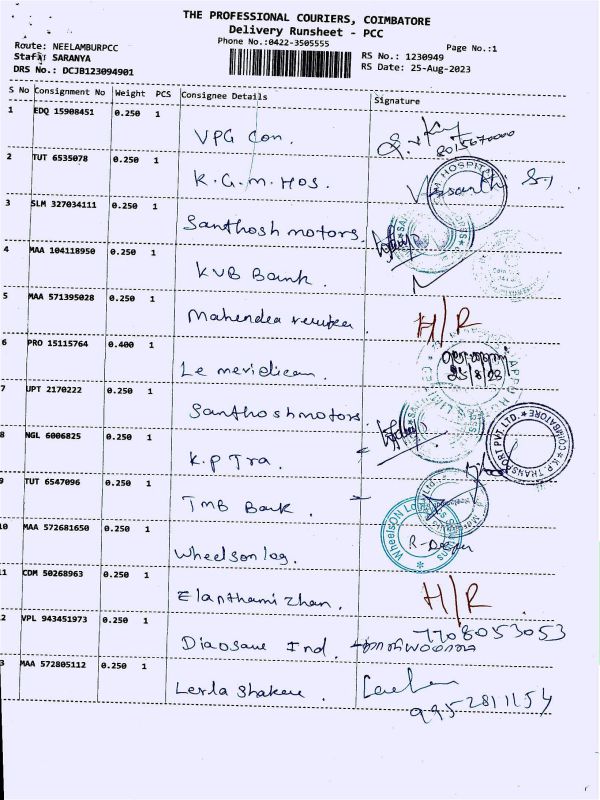 THE PROFESSIONAL COURIERS, COIMBATORE
Delivery Runsheet - PCC
Phone No.:0422-3505555
Page No.:1
Route: NEELAMBURPCC
Staff: SARANYA
DRS No.: DCJB123094901
RS No.: 1230949
RS Date: 25-Aug-2023
S No Consignment No Weight PCS Consignee Details Signature
1 EDQ 15908451 0.250 1 VPG Con.
2 TUT 6535078 0.250 1 K.G.M. Hos.
3 SLM 327034111 0.250 1 Santhosh motors.
4 MAA 104118950 0.250 1 KVB Bank.
5 MAA 571395028 0.250 1 Mahendra H/R
6 PRO 15115764 0.400 1 Le meridican. 25/8/23
7 UPT 2170222 0.250 1 Santhosh motors.
8 NGL 6006825 0.250 1 K.P Tra.
K.P. TRANSPORT PVT. LTD. COIMBATORE
9 TUT 6547096 0.250 1 TMB Bank.
10 MAA 572681650 0.250 1 Wheelsonlog.
11 CDM 50268963 0.250 1 Elanthamizhan. H/R
2 VPL 943451973 0.250 1 Ind. 7708053053
3 MAA 572805112 0.250 1
9952811154